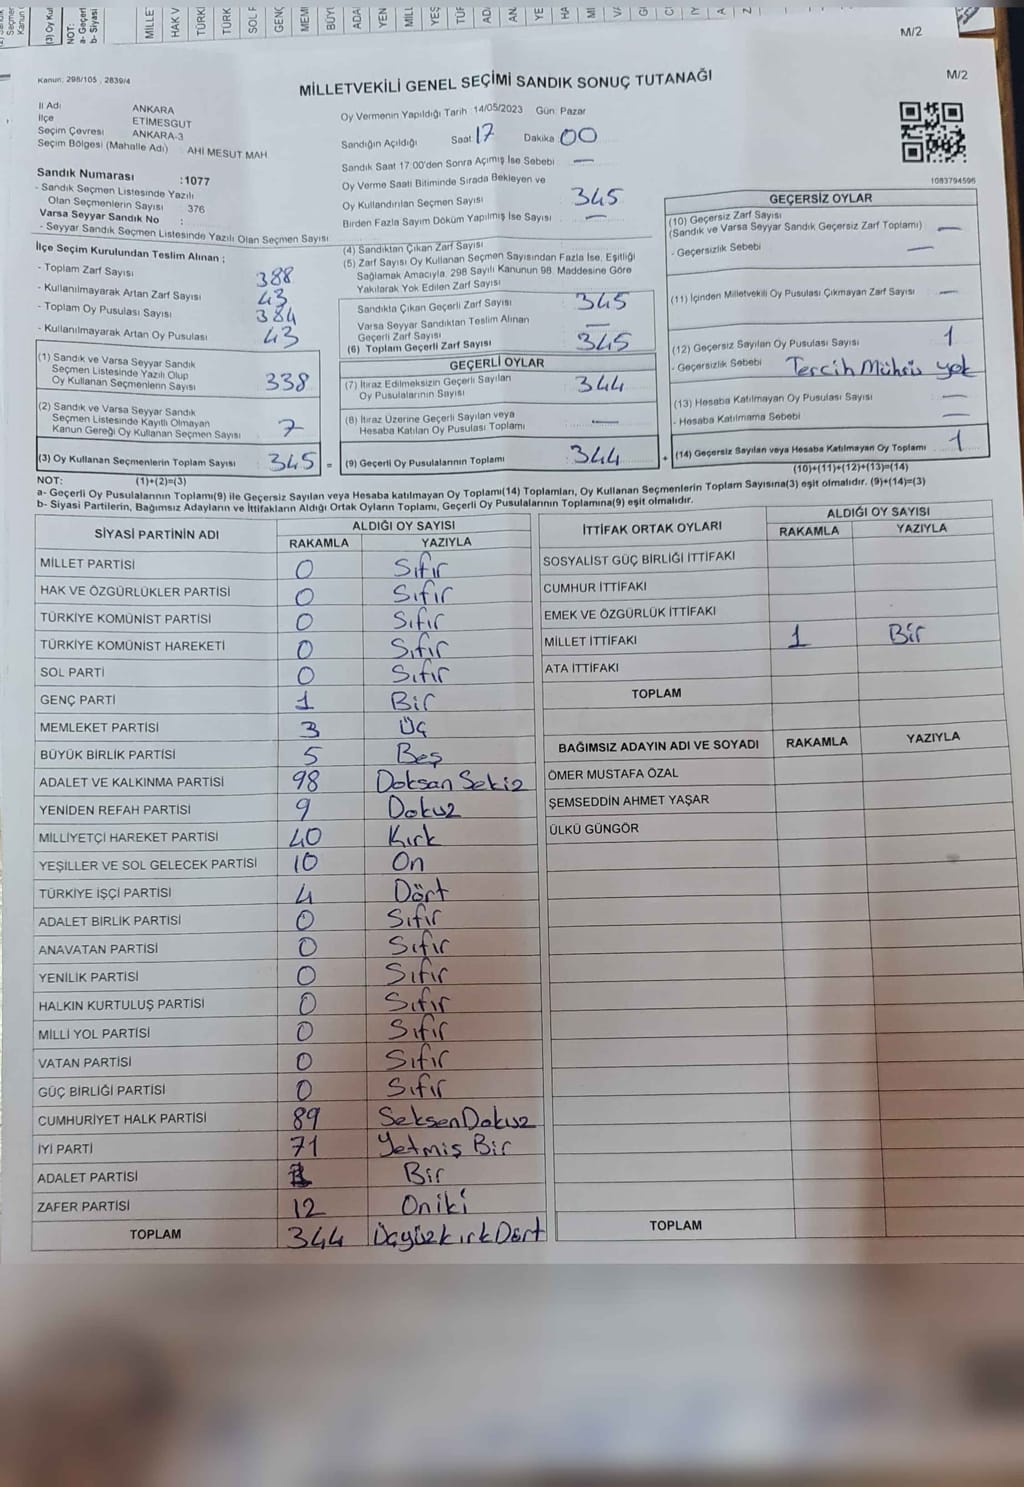 M/2
M/2
Kanun: 298/105 , 2839/4
MİLLETVEKİLİ GENEL SEÇİMİ SANDIK SONUÇ TUTANAĞI
İl Adı ANKARA
İlçe ETİMESGUT
Seçim Çevresi ANKARA-3
Seçim Bölgesi (Mahalle Adı) AHİ MESUT MAH
Sandık Numarası :1077
- Sandık Seçmen Listesinde Yazılı
Olan Seçmenlerin Sayısı 376
Varsa Seyyar Sandık No :
- Seyyar Sandık Seçmen Listesinde Yazılı Olan Seçmen Sayısı
İlçe Seçim Kurulundan Teslim Alınan ;
- Toplam Zarf Sayısı 388
- Kullanılmayarak Artan Zarf Sayısı 43
- Toplam Oy Pusulası Sayısı 384
- Kullanılmayarak Artan Oy Pusulası 43
(1) Sandık ve Varsa Seyyar Sandık
Seçmen Listesinde Yazılı Olup
Oy Kullanan Seçmenlerin Sayısı 338
(2) Sandık ve Varsa Seyyar Sandık
Seçmen Listesinde Kayıtlı Olmayan
Kanun Gereği Oy Kullanan Seçmen Sayısı 7
(3) Oy Kullanan Seçmenlerin Toplam Sayısı 345 =
(1)+(2)=(3)
Oy Vermenin Yapıldığı Tarih 14/05/2023 Gün: Pazar
Sandığın Açıldığı Saat 17 Dakika 00
Sandık Saat 17:00'den Sonra Açımış İse Sebebi —
Oy Verme Saati Bitiminde Sırada Bekleyen ve
Oy Kullandırılan Seçmen Sayısı 345
Birden Fazla Sayım Döküm Yapılmış İse Sayısı —
(4) Sandıktan Çıkan Zarf Sayısı
(5) Zarf Sayısı Oy Kullanan Seçmen Sayısından Fazla İse, Eşitliği
Sağlamak Amacıyla, 298 Sayılı Kanunun 98. Maddesine Göre
Yakılarak Yok Edilen Zarf Sayısı
Sandıkta Çıkan Geçerli Zarf Sayısı 345
Varsa Seyyar Sandıktan Teslim Alınan
Geçerli Zarf Sayısı —
(6) Toplam Geçerli Zarf Sayısı 345
GEÇERLİ OYLAR
(7) İtiraz Edilmeksizin Geçerli Sayılan
Oy Pusulalarının Sayısı 344
(8) İtiraz Üzerine Geçerli Sayılan veya
Hesaba Katılan Oy Pusulası Toplamı —
(9) Geçerli Oy Pusulalarının Toplamı 344 +
1083794596
GEÇERSİZ OYLAR
(10) Geçersiz Zarf Sayısı
(Sandık ve Varsa Seyyar Sandık Geçersiz Zarf Toplamı) —
- Geçersizlik Sebebi —
(11) İçinden Milletvekili Oy Pusulası Çıkmayan Zarf Sayısı —
(12) Geçersiz Sayılan Oy Pusulası Sayısı 1
- Geçersizlik Sebebi Tercih Mührü yok
(13) Hesaba Katılmayan Oy Pusulası Sayısı —
- Hesaba Katılmama Sebebi —
(14) Geçersiz Sayılan veya Hesaba Katılmayan Oy Toplamı 1
(10)+(11)+(12)+(13)=(14)
NOT:
a- Geçerli Oy Pusulalarının Toplamı(9) ile Geçersiz Sayılan veya Hesaba katılmayan Oy Toplamı(14) Toplamları, Oy Kullanan Seçmenlerin Toplam Sayısına(3) eşit olmalıdır. (9)+(14)=(3)
b- Siyasi Partilerin, Bağımsız Adayların ve İttifakların Aldığı Ortak Oyların Toplamı, Geçerli Oy Pusulalarının Toplamına(9) eşit olmalıdır.
SİYASİ PARTİNİN ADI ALDIĞI OY SAYISI
RAKAMLA YAZIYLA
MİLLET PARTİSİ 0 Sıfır
HAK VE ÖZGÜRLÜKLER PARTİSİ 0 Sıfır
TÜRKİYE KOMÜNİST PARTİSİ 0 Sıfır
TÜRKİYE KOMÜNİST HAREKETİ 0 Sıfır
SOL PARTİ 0 Sıfır
GENÇ PARTİ 1 Bir
MEMLEKET PARTİSİ 3 Üç
BÜYÜK BİRLİK PARTİSİ 5 Beş
ADALET VE KALKINMA PARTİSİ 98 Doksan Sekiz
YENİDEN REFAH PARTİSİ 9 Dokuz
MİLLİYETÇİ HAREKET PARTİSİ 40 Kırk
YEŞİLLER VE SOL GELECEK PARTİSİ 10 On
TÜRKİYE İŞÇİ PARTİSİ 4 Dört
ADALET BİRLİK PARTİSİ 0 Sıfır
ANAVATAN PARTİSİ 0 Sıfır
YENİLİK PARTİSİ 0 Sıfır
HALKIN KURTULUŞ PARTİSİ 0 Sıfır
MİLLİ YOL PARTİSİ 0 Sıfır
VATAN PARTİSİ 0 Sıfır
GÜÇ BİRLİĞİ PARTİSİ 0 Sıfır
CUMHURİYET HALK PARTİSİ 89 Seksen Dokuz
İYİ PARTİ 71 Yetmiş Bir
ADALET PARTİSİ 1 Bir
ZAFER PARTİSİ 12 Oniki
TOPLAM 344 Üçyüzkırk Dört
İTTİFAK ORTAK OYLARI ALDIĞI OY SAYISI
RAKAMLA YAZIYLA
SOSYALİST GÜÇ BİRLİĞİ İTTİFAKI
CUMHUR İTTİFAKI
EMEK VE ÖZGÜRLÜK İTTİFAKI
MİLLET İTTİFAKI 1 Bir
ATA İTTİFAKI
TOPLAM
BAĞIMSIZ ADAYIN ADI VE SOYADI RAKAMLA YAZIYLA
ÖMER MUSTAFA ÖZAL
ŞEMSEDDİN AHMET YAŞAR
ÜLKÜ GÜNGÖR
TOPLAM